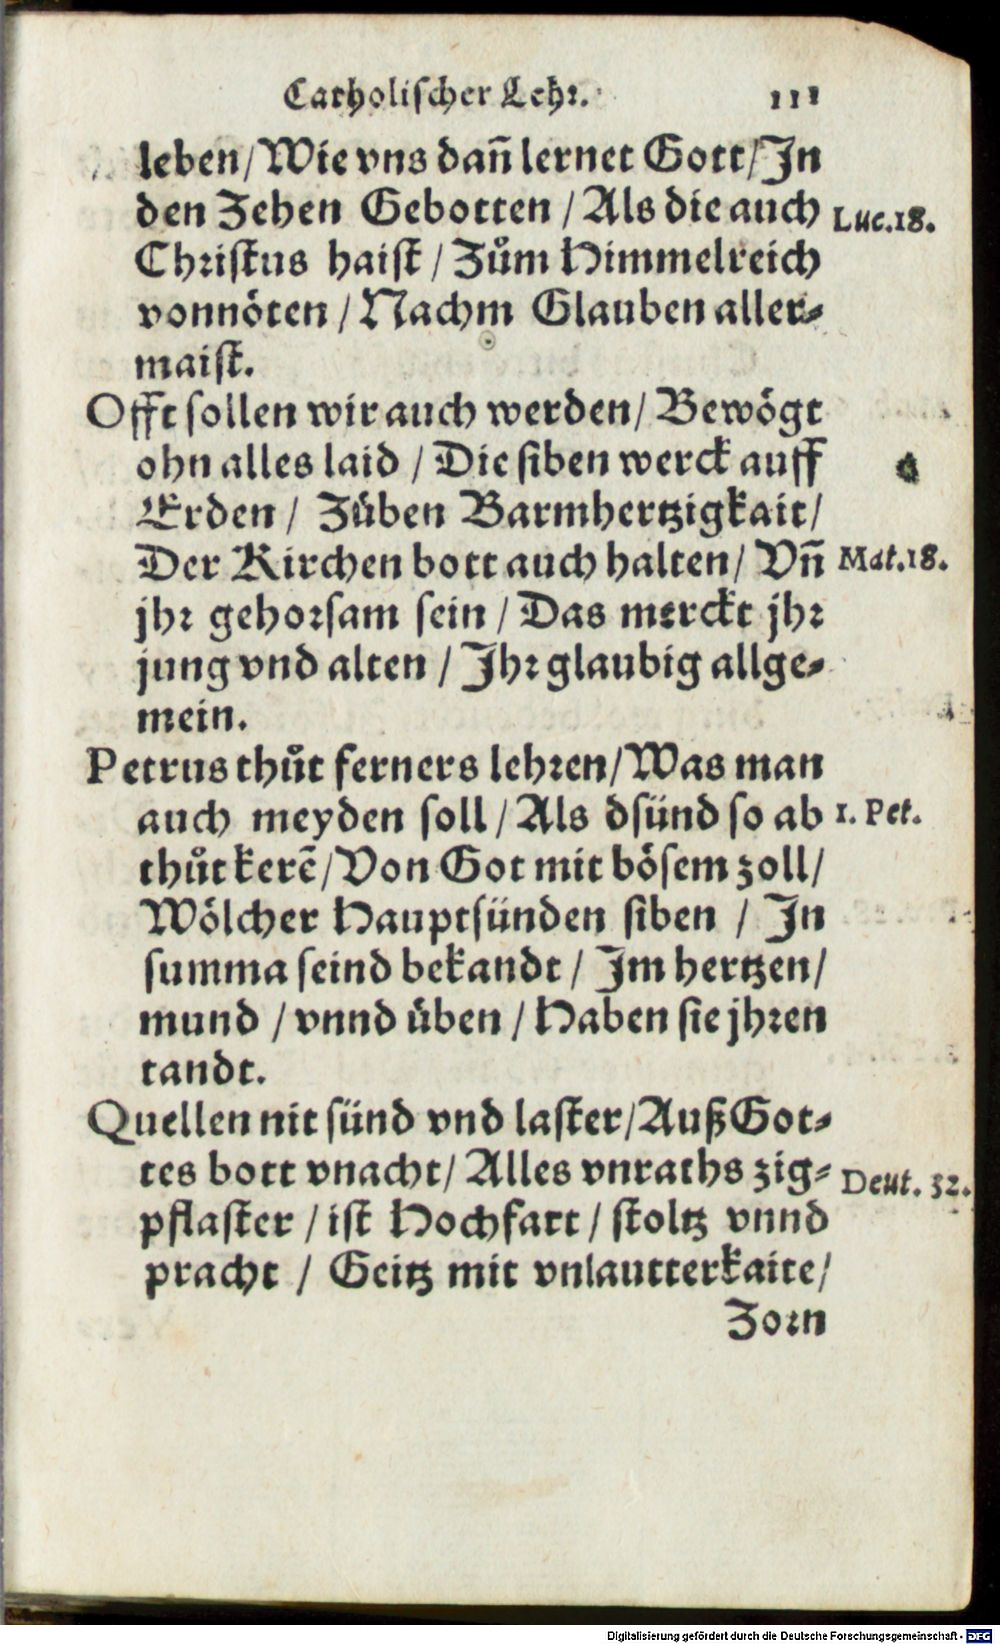 Catholischer Lehr. 111
leben/Wie vns dañ lernet Gott/In
den Zehen Gebotten /Als die auch Luc.18.
Christus haist / Zům Himmelreich
vonnöten /Nachm Glauben aller-
maist.
Offt sollen wir auch werden/ Bewögt
ohn alles laid / Die siben werck auff
Erden / Zůben Barmhertzigkait/
Der Kirchen bott auch halten/ Vñ Mat.18.
jhr gehorsam sein / Das merckt jhr
jung vnd alten / Ihr glaubig allge-
mein.
Petrus thůt ferners lehren/Was man
auch meyden soll /Als dsünd so ab 1. Pet.
thůt kerẽ/Von Got mit bösem zoll/
Wölcher Hauptsünden siben / In
summa seind bekandt / Im hertzen/
mund /vnnd üben /Haben sie jhren
tandt.
Quellen nit sünd vnd laster/Auß Got-
tes bott vnacht/ Alles vnraths zig- Deut. 32.
pflaster /ist Hochfart / stoltz vnnd
pracht / Geitz mit vnlautterkaite/
Zorn
Digitalisierung gefördert durch die Deutsche Forschungsgemeinschaft - DFG